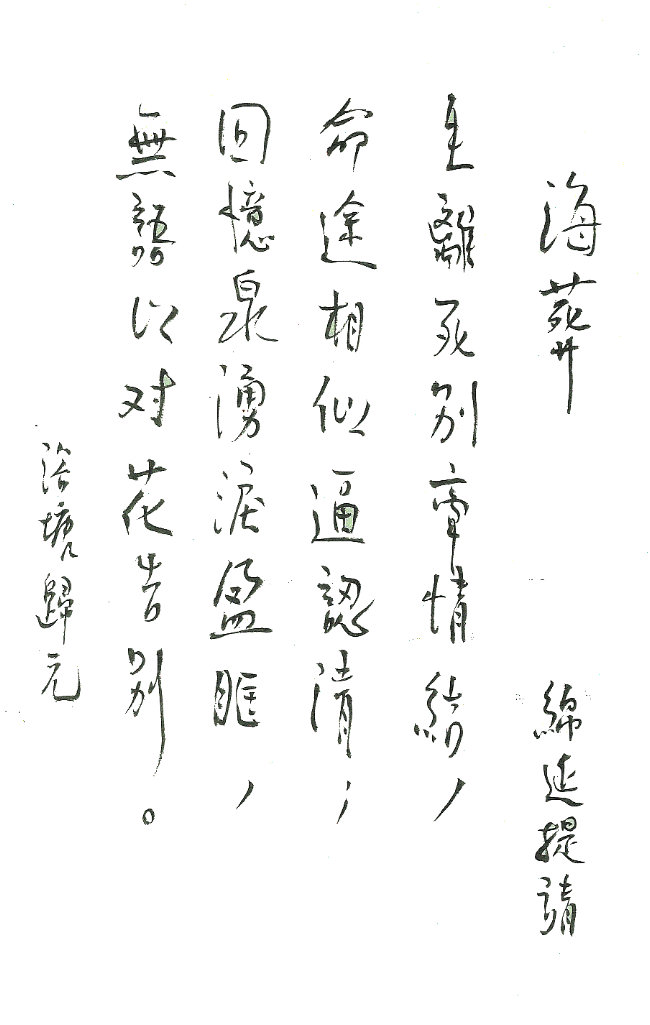 海葬
綿延提請
生離死別牽情結，
命途相似逼認清；
回憶泉湧淚盈眶，
無語以对花告別。
浴塘歸元